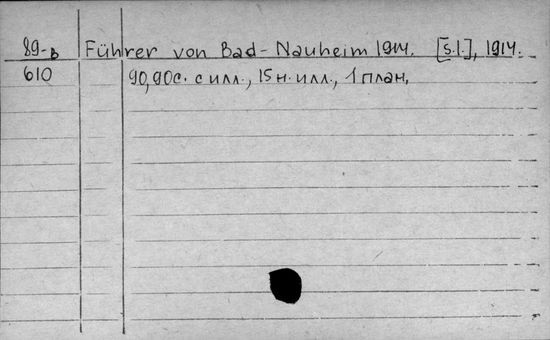 89-в Führer von Bad-Nauheim 1914. [s.l.], 1914.
610 90,90с. с илл., 15 н. илл., 1 план.